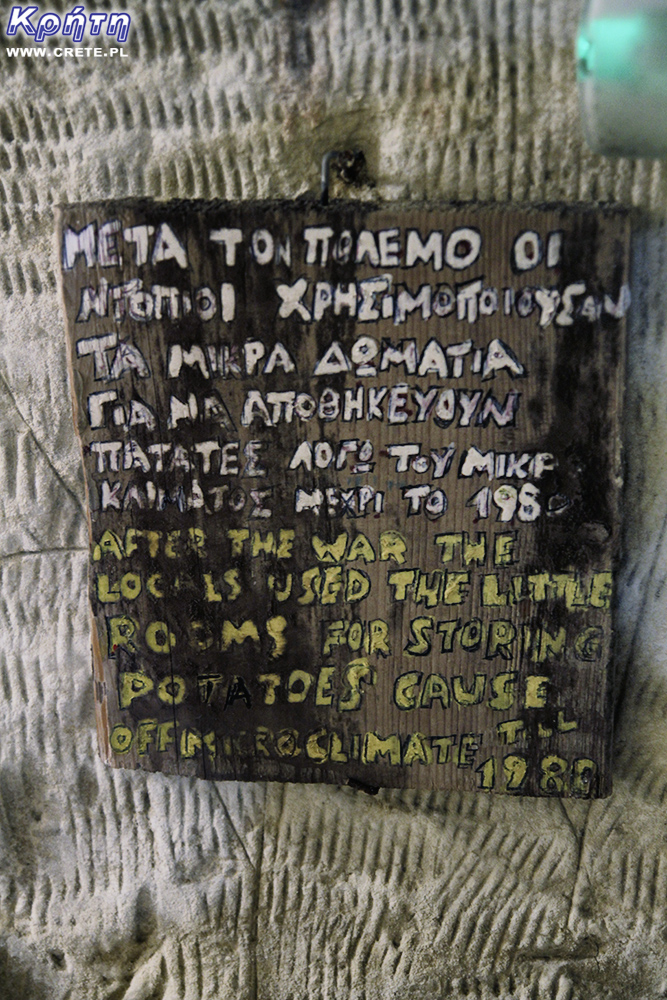 Κρήτη
WWW.CRETE.PL
ΜΕΤΑ ΤΟΝ ΠΟΛΕΜΟ ΟΙ
ΝΤΟΠΙΟΙ ΧΡΗΣΙΜΟΠΟΙΟΥΣΑΝ
ΤΑ ΜΙΚΡΑ ΔΩΜΑΤΙΑ
ΓΙΑ ΝΑ ΑΠΟΘΗΚΕΥΟΥΝ
ΠΑΤΑΤΕΣ ΛΟΓΩ ΤΟΥ ΜΙΚΡ
ΚΛΙΜΑΤΟΣ ΜΕΧΡΙ ΤΟ 1980
AFTER THE WAR THE
LOCALS USED THE LITTLE
ROOMS FOR STORING
POTATOES CAUSE
OFF MICROCLIMATE TILL
1980